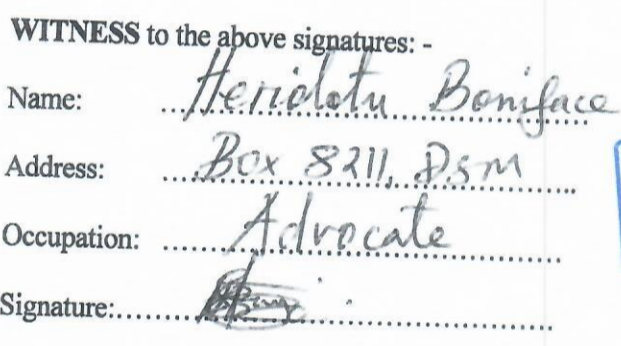 WITNESS to the above signatures: -
Name: Heridotu Boniface
Address: Box 8211, Dsm
Occupation: Advocate
Signature: